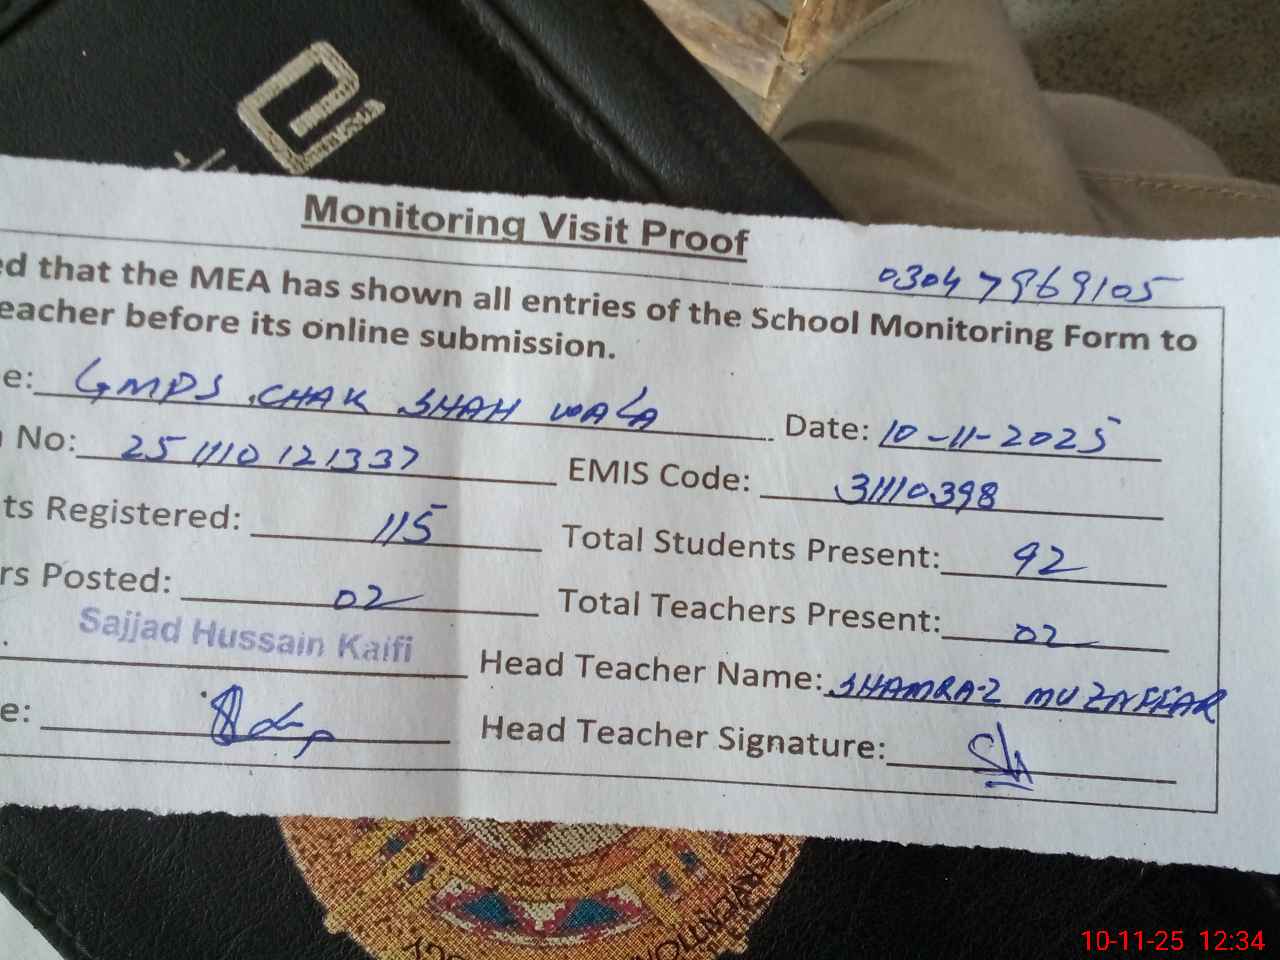 Monitoring Visit Proof
03047969105
ed that the MEA has shown all entries of the School Monitoring Form to
eacher before its online submission.
e: GMPS CHAK SHAH WALA Date: 10-11-2025
No: 251110121337 EMIS Code: 31110398
ts Registered: 115 Total Students Present: 92
rs Posted: 02 Total Teachers Present: 02
Sajjad Hussain Kaifi Head Teacher Name: SHAMRAZ MUZAFFAR
e: Head Teacher Signature:
TERVENTION
10-11-25 12:34